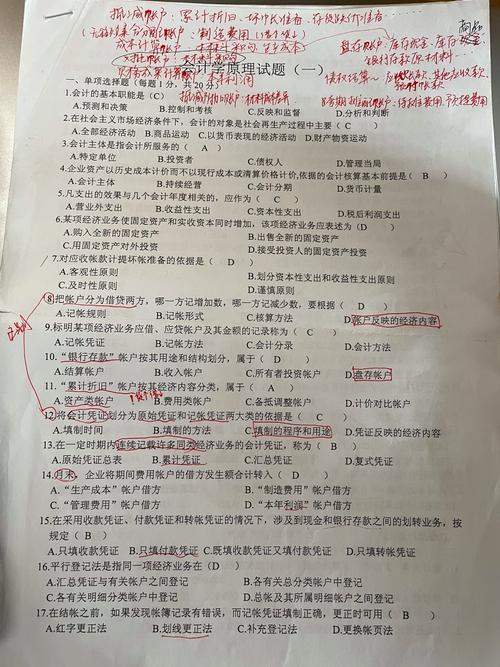 抵减账户：累计折旧、坏帐准备、存货跌价准备……
盘存账户：库存现金、库存
银行存款 原材料……
会计学原理试题（一）
一、单项选择题（每题 1 分，共 20 分）
1.会计的基本职能是（C）
A.预测和决策 B.控制和考核 C.反映和监督 D.分析和判断
2.在社会主义市场经济条件下，会计的对象是社会再生产过程中主要（ C ）
A.全部经济活动 B.商品运动 C.以货币表现的经济活动 D.财产物资运动
3.会计主体是指会计所服务的（ A ）
A.特定单位 B.投资者 C.债权人 D.管理当局
4.企业资产以历史成本计价而不以现行成本或清算价格计价,依据的会计核算基本前提是（ B ）
A.会计主体 B.持续经营 C.会计分期 D.货币计量
5.凡支出的效果与几个会计年度相关的，应作为（ C ）
A.营业外支出 B.收益性支出 C.资本性支出 D.税后利润支出
6.某项经济业务使固定资产和实收资本同时增加，该项经济业务应表述为（ D ）
A.购入全新的固定资产 B.出售全新的固定资产
C.用固定资产对外投资 D.接受投资人的固定资产投资
7.对应收帐款计提坏帐准备的依据是（ D ）
A.客观性原则 B.划分资本性支出和收益性支出原则
C.及时性原则 D.谨慎原则
8.把帐户分为借贷两方，哪一方记增加数，哪一方记减少数，要根据（ D ）
A.记帐规则 B.记帐形式 C.核算方法 D.帐户反映的经济内容
区别
9.标明某项经济业务应借、应贷帐户及其金额的记录称为（ C ）
A.记帐凭证 B.记帐方法 C.会计分录 D.会计方法
10.“银行存款”帐户按其用途和结构划分，属于（ D ）
A.结算帐户 B.收入帐户 C.所有者投资帐户 D.盘存帐户
11.“累计折旧”帐户按其经济内容分类，属于（ A ）
A.资产类帐户 B.费用类帐户 C.备抵调整帐户 D.计价对比帐户
12.将会计凭证划分为原始凭证和记帐凭证两大类的依据是（ C ）
A.填制时间 B.填制的方法 C.填制的程序和用途 D.凭证反映的经济内容
13.在一定时期内连续记载许多同类经济业务的会计凭证，称为（ B ）
A.原始凭证总表 B.累计凭证 C.汇总凭证 D.复式凭证
14.月末，企业将期间费用帐户的借方发生额合计转入（ D ）
A.“生产成本”帐户借方 B.“制造费用”帐户借方
C.“管理费用”帐户借方 D.“本年利润”帐户借方
15.在采用收款凭证、付款凭证和转帐凭证的情况下，涉及到现金和银行存款之间的划转业务，按
规定（ B ）
A.只填收款凭证 B.只填付款凭证 C.既填收款凭证又填付款凭证 D.只填转帐凭证
16.平行登记法是指同一项经济业务在（D ）
A.汇总凭证与有关帐户之间登记 B.各有关总分类帐户中登记
C.各有关明细分类帐户中登记 D.总帐及其所属明细帐户之间登记
17.在结帐之前，如果发现帐簿记录有错误，而记帐凭证填制正确，更正时可用（ B ）
A.红字更正法 B.划线更正法 C.补充登记法 D.更换帐页法